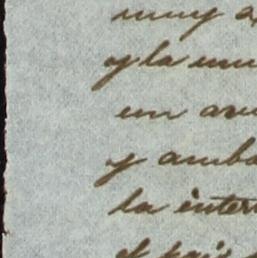 muy a
y la mu
un avi
y amba
la inter
el pais